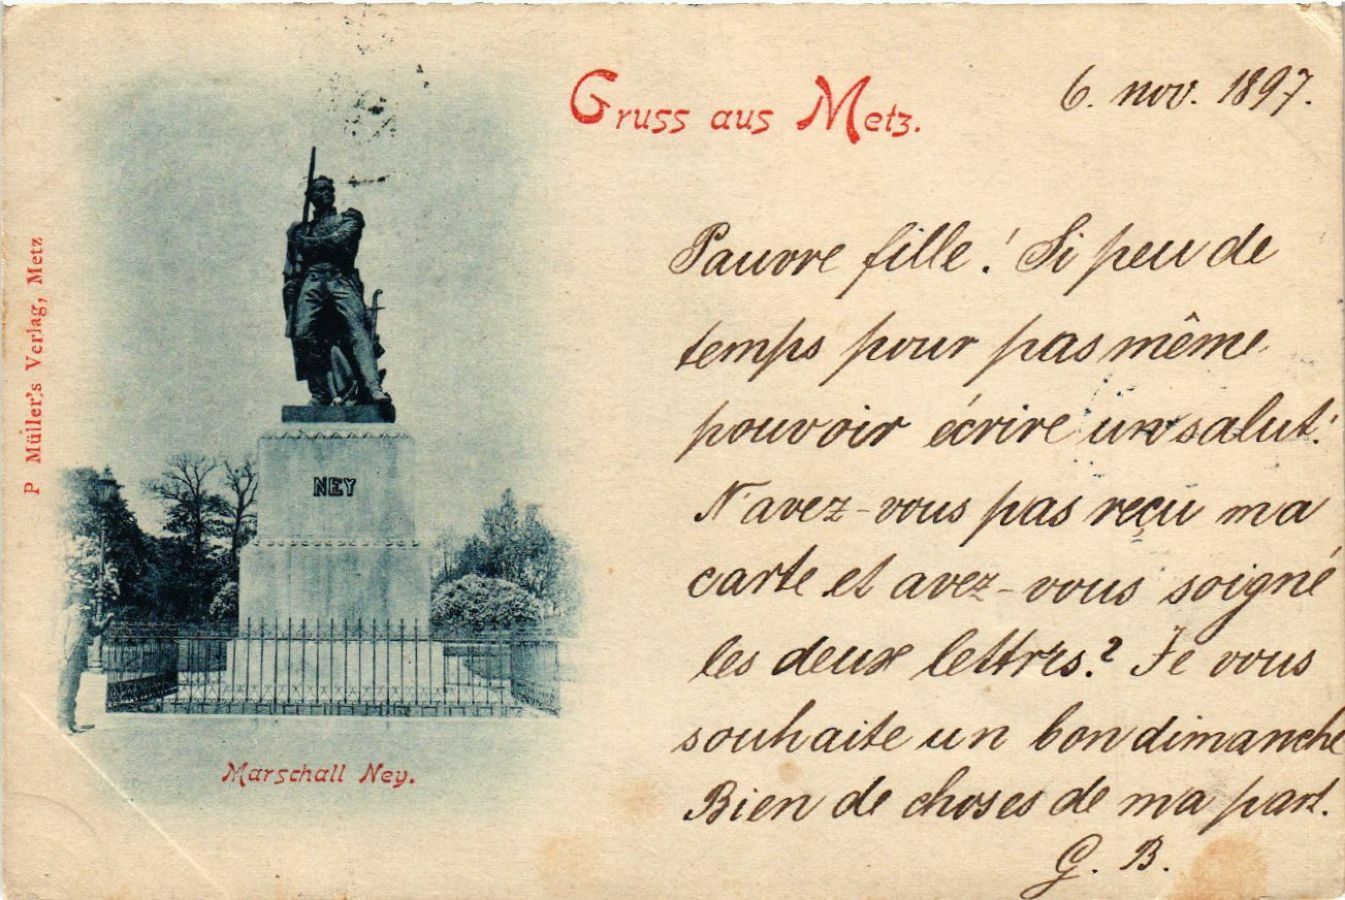 Gruss aus Metz.
6. nov. 1897.
P Müller's Verlag, Metz
NEY
Marschall Ney.
Pauvre fille! Si peu de
temps pour pas même
pouvoir écrire un salut!
N'avez-vous pas reçu ma
carte et avez-vous soigné
les deux lettres? Je vous
souhaite un bon dimanche
Bien de choses de ma part.
G. B.